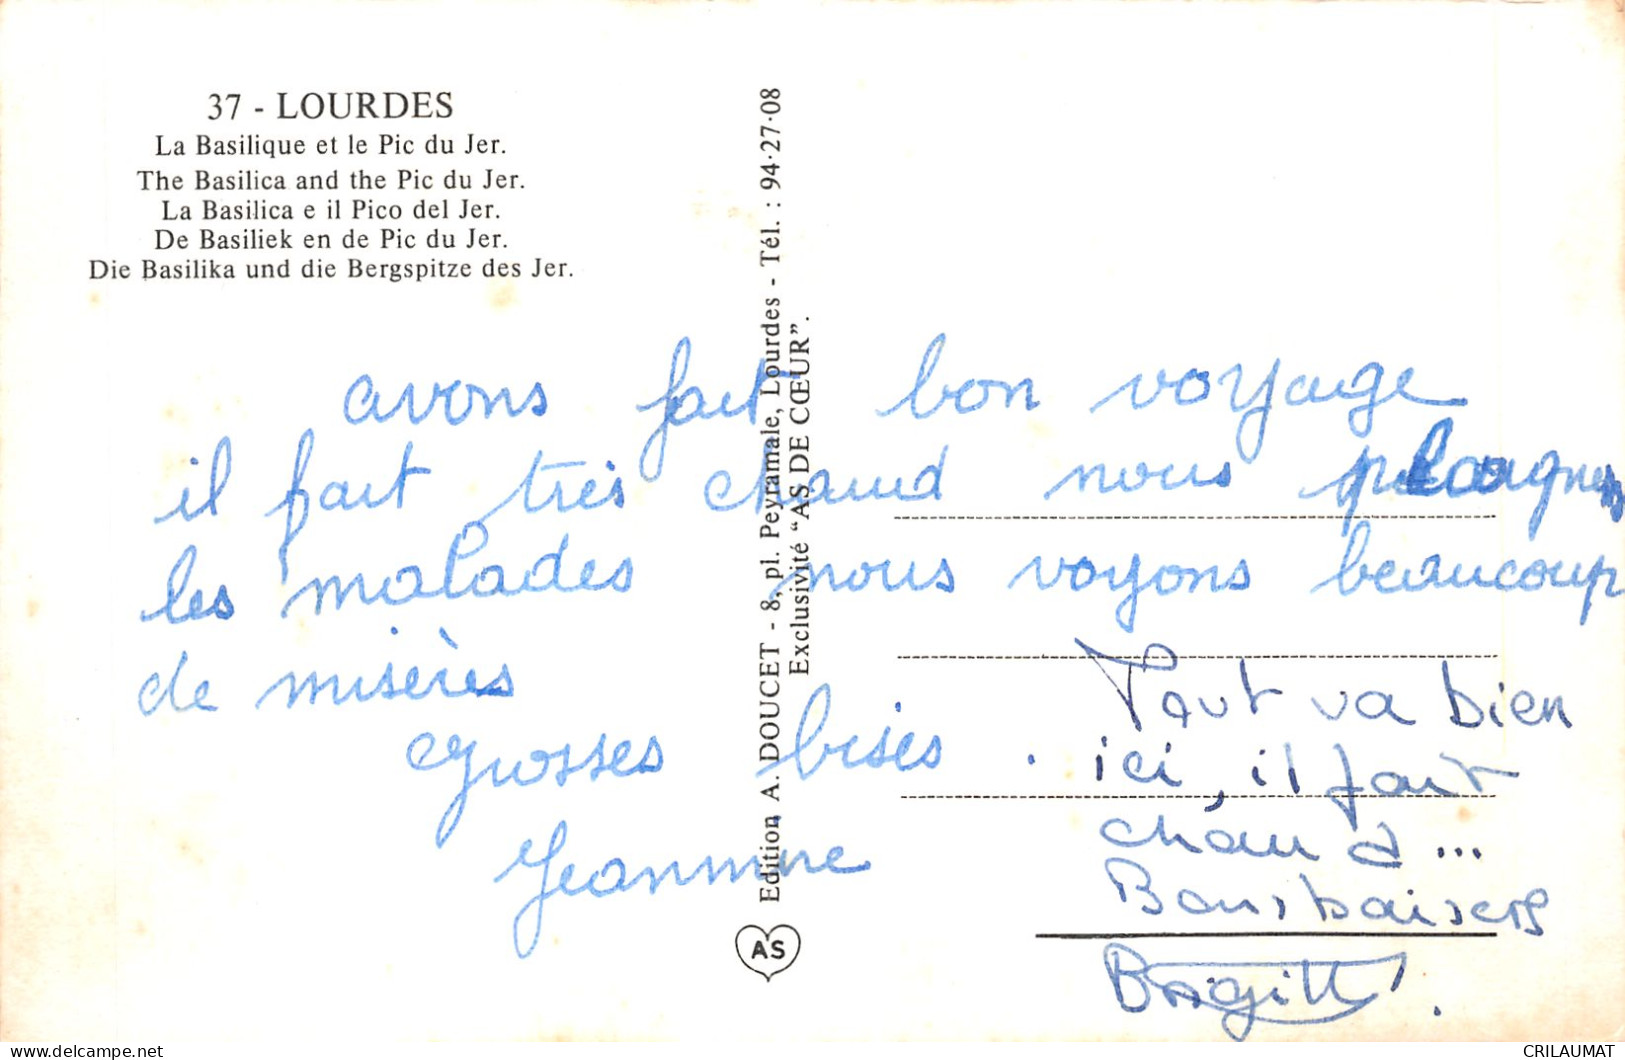 37 - LOURDES
La Basilique et le Pic du Jer.
The Basilica and the Pic du Jer.
La Basilica e il Pico del Jer.
De Basiliek en de Pic du Jer.
Die Basilika und die Bergspitze des Jer.
avons fait bon voyage
il fait très chaud nous plaignons
les malades nous voyons beaucoup
de misères
grosses bises.
Jeannine
Edition A. DOUCET - 8, pl. Peyramale, Lourdes - Tél. : 94·27·08
Exclusivité "AS DE CŒUR".
AS
Tout va bien
ici, il fait
chaud...
Bons baisers
Brigitte.
delcampe.net
CRILAUMAT